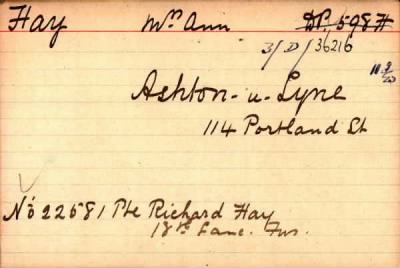 Hay Mrs Ann D.P. 598 H
3/D/36216
Ashton-u-Lyne
114 Portland St
No 22581 Pte Richard Hay
18th Lanc. Fus.